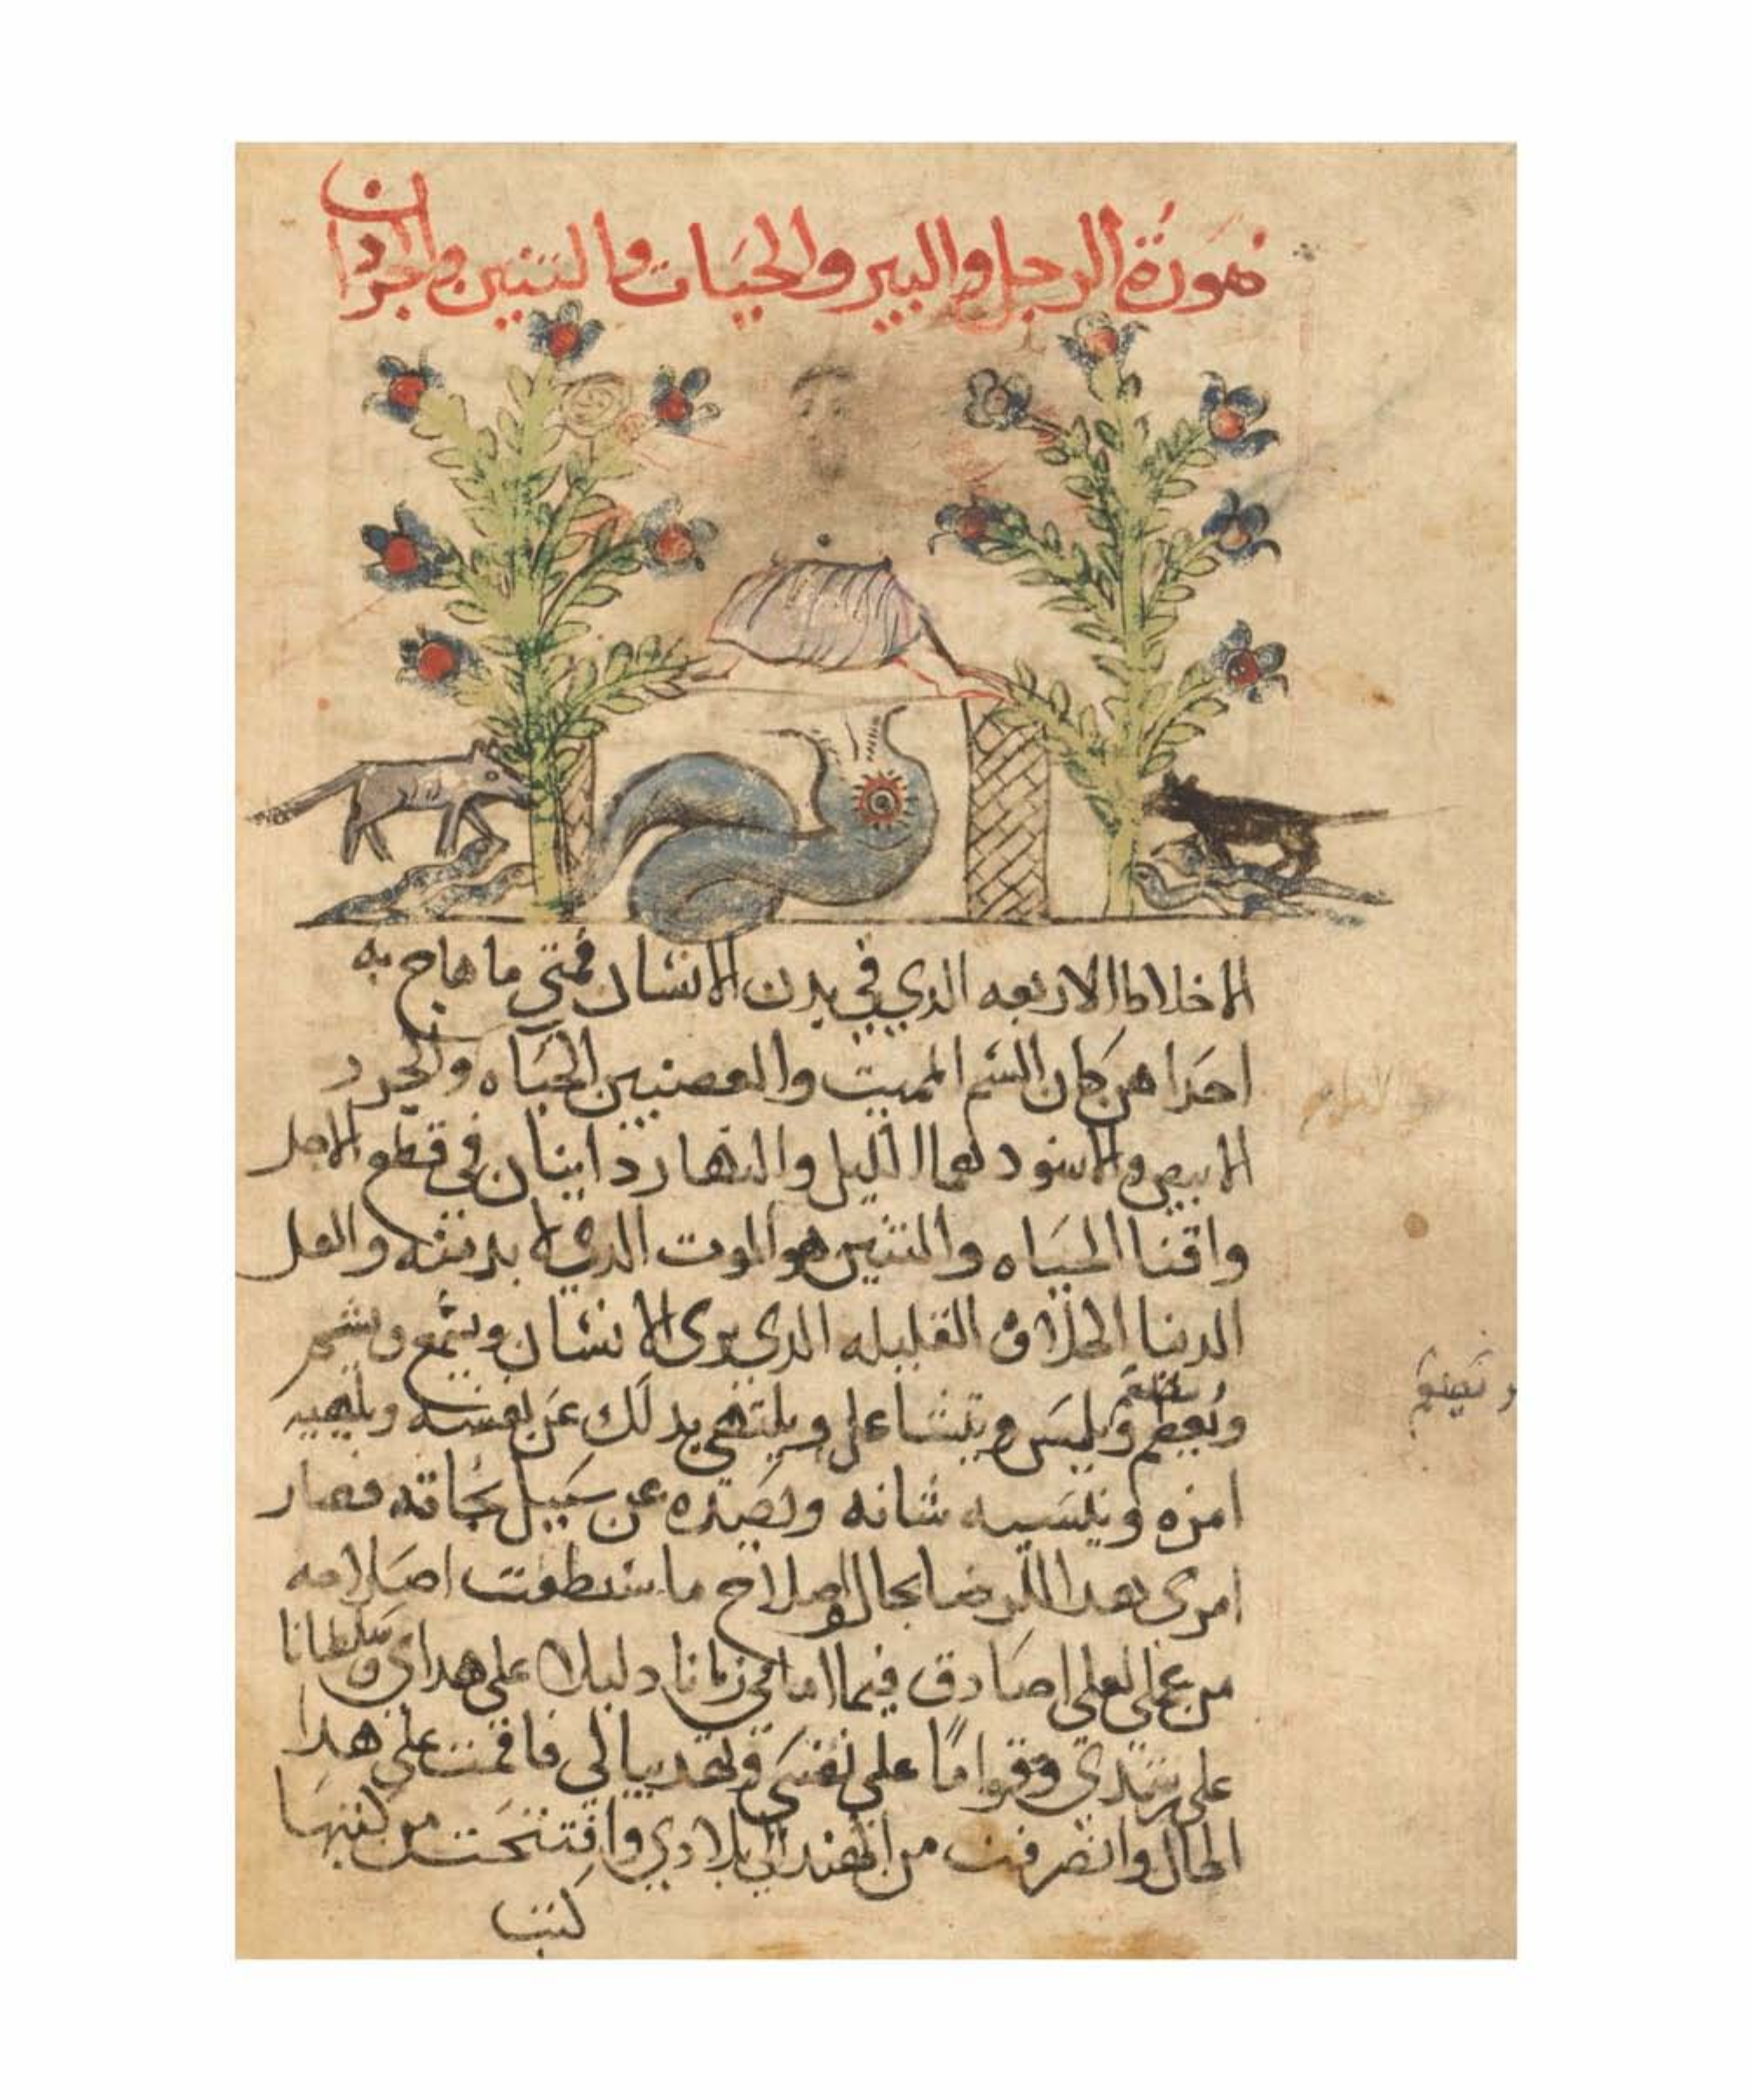 صورة الرجل والبير والحيات والتنين والجردان
الاخلاط الاربعه الدي في بدن الانسان فمتى ما هاج به
احداهن كان السم المميت والغصنين الحياه والجرد
الابيض والاسود لهما الليل والنهار داينان في قطع الاجل
وافنا الحياه والتنين هو الموت الدي لا بد منه والعسل
الدنيا الحلاوه القليله الدي يرى الانسان ويسمع ويشم
ويطعم ويلمس ويتشاغل ويلتهي بدلك عن نفسه ويلهيه
امره وينسيه شانه ويصده عن سبيل نجاته فصار
امري بهدا الى الرضا بحال واصلاح ما استطعت اصلاحه
من عملي لعلي اصادف فيما امامي زمانا دليلا على هداي وسلطانا
على رشدي وقواما على نفسي فاقمت على هدا
الحال وانصرفت من الهند الى بلادي وانتسخت من كتبها
كتب